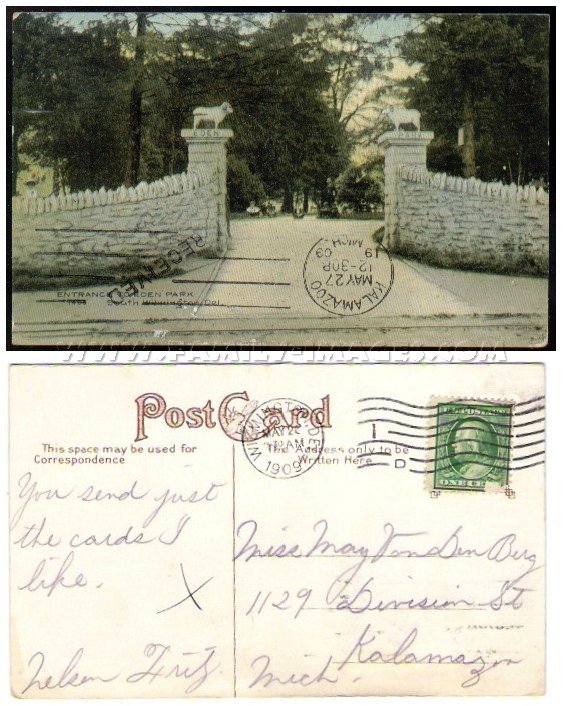 EDEN
RECEIVED
KALAMAZOO
MAY 27
12-30P
19 09
MICH.
ENTRANCE TO EDEN PARK
South Wilmington, Del.
WWW.FAMILY-IMAGES.COM
Post Card
This space may be used for
Correspondence
The Address only to be
Written Here
WILMINGTON, DEL
MAY
AM
1909
1
D
You send just
the cards I
like.
X
Nelson Fritz
Miss May VanDenBerg
1129 Division St
Kalamazoo
Mich.